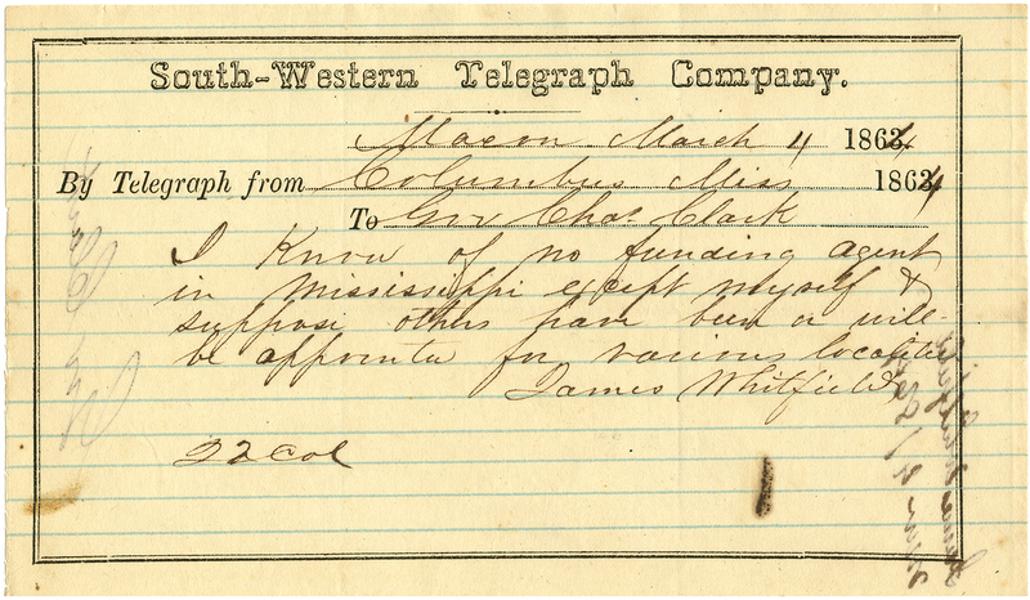 South-Western Telegraph Company.
Macon March 4 1864
By Telegraph from Columbus Miss 1864
To Gov Chas. Clark
I Know of no funding agent
in Mississippi except myself &
suppose others have been or will
be appointed for various localities
James Whitfield
22 Col